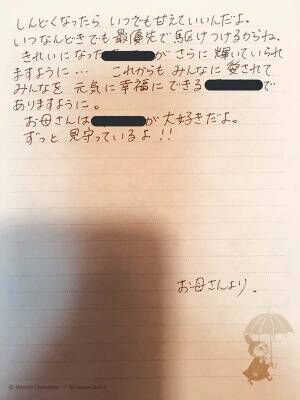 しんどくなったら いつでも甘えていいんだよ。
いつなんどきでも 最優先で駆けつけるからね。
きれいになった が さらに 輝いていられ
ますように… これからも みんなに 愛されて
みんなを 元気に 幸福に できる で
ありますように。
お母さんは が 大好きだよ。
ずっと 見守っているよ!!
お母さんより。